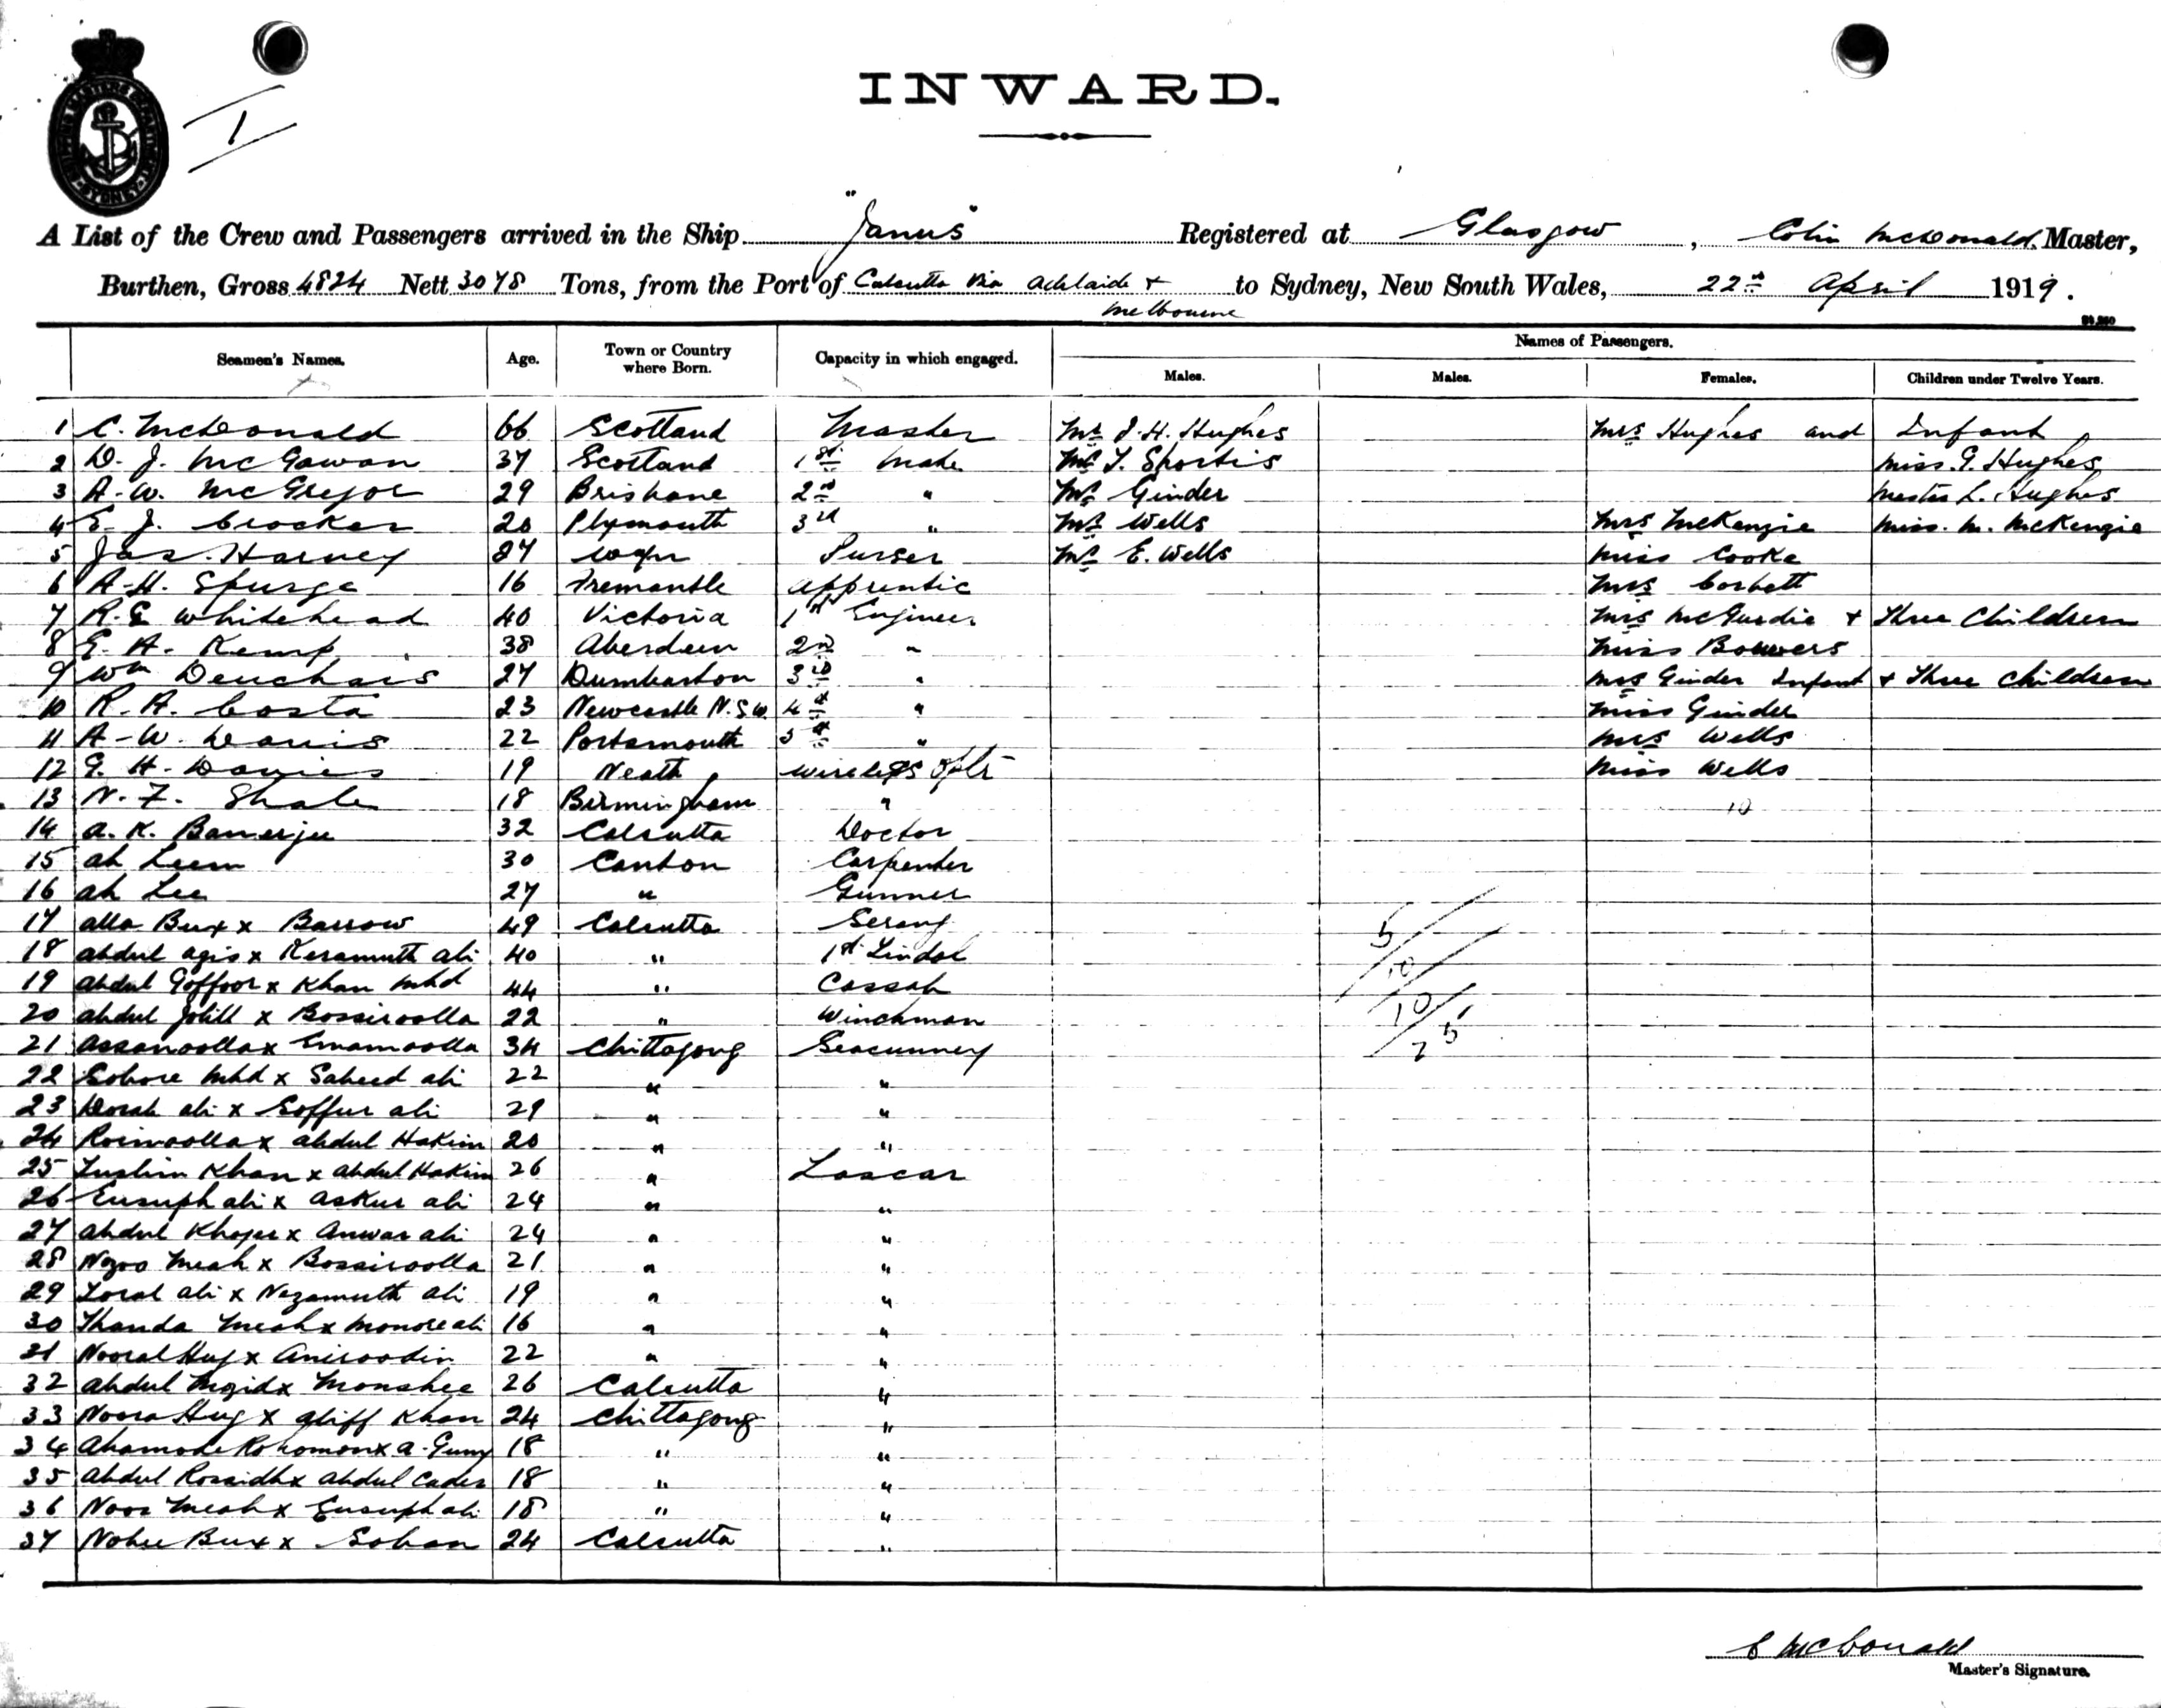 I
INWARD.
A List of the Crew and Passengers arrived in the Ship "Janus" Registered at Glasgow, Colin McDonald Master,
Burthen, Gross 4824 Nett 3078 Tons, from the Port of Calcutta via Adelaide & Melbourne to Sydney, New South Wales, 22nd April 1919.
Seamen's Names. Age. Town or Country where Born. Capacity in which engaged. Names of Passengers.
Males. Males. Females. Children under Twelve Years.
1 C. McDonald 66 Scotland Master Mr J. H. Hughes Mrs Hughes and Infant
2 D. J. McGowan 37 Scotland 1st Mate Mr T. Shortis Miss G. Hughes
3 A. W. McGregor 29 Brisbane 2nd " Mr Ginder Master L. Hughes
4 E. J. Crocker 20 Plymouth 3rd " Mr Wells Mrs McKenzie Miss. M. McKenzie
5 Jas. Harvey Purser Mr E. Wells Miss Cooke
6 A. H. Spurge 16 Fremantle Apprentic Mrs Corbett
7 R. E Whitehead 40 Victoria 1st Engineer Mrs McGurdie & Three Children
8 E. A. Kemp 38 Aberdeen 2nd " Miss Bouwers
9 Wm Deuchars 27 Dumbarton 3rd " Mrs Ginder Infant & Three Children
10 R. A. Costa 23 Newcastle N.S.W. 4th " Miss Ginder
11 A. W. Davis 22 Portsmouth 5th " Mrs Wells
12 G. H. Davies 19 Neath Wireless Optr Miss Wells
13 N. F. Shale 18 Birmingham " 10
14 A. K. Banerjee 32 Calcutta Doctor
15 Ah Leem 30 Canton Carpenter
16 Ah Lee 27 " Gunner
17 Alla Bux x Barrow 49 Calcutta Serang
18 Abdul Agis x Keramuth Ali 40 " 1st Tindal
19 Abdul Goffoor x Khan Mhd 44 " Cassab
20 Abdul Jolill x Bossiroolla 22 " Winchman
21 Assanoolla x Emamoolla 34 Chittagong Seacunney
22 Sobore Mhd x Saheed Ali 22 " "
23 Dorab Ali x Goffur Ali 29 " "
24 Roimoolla x Abdul Hakim 20 " "
25 Khan x Abdul Hakim 26 " Lascar
26 Eusuph Ali x Askur Ali 24 " "
27 Abdul Khayer x Anwar Ali 24 " "
28 Nozoo Meah x Bossiroolla 21 " "
29 Ali x Nezamuth Ali 19 " "
30 Thanda Meah x Monore Ali 16 " "
31 Nooral Huq x Aniroodin 22 " "
32 Abdul Mozid x Monshee 26 Calcutta "
33 Noora Huq x Aliff Khan 24 Chittagong "
34 Ahamode Rohomon x A. Guny 18 " "
35 Abdul Rossidh x Abdul Cader 18 " "
36 Noor Meah x Eusuph Ali 18 " "
37 Nobee Bux x Soban 24 Calcutta "
5
10
10
25
C McDonald
Master's Signature.